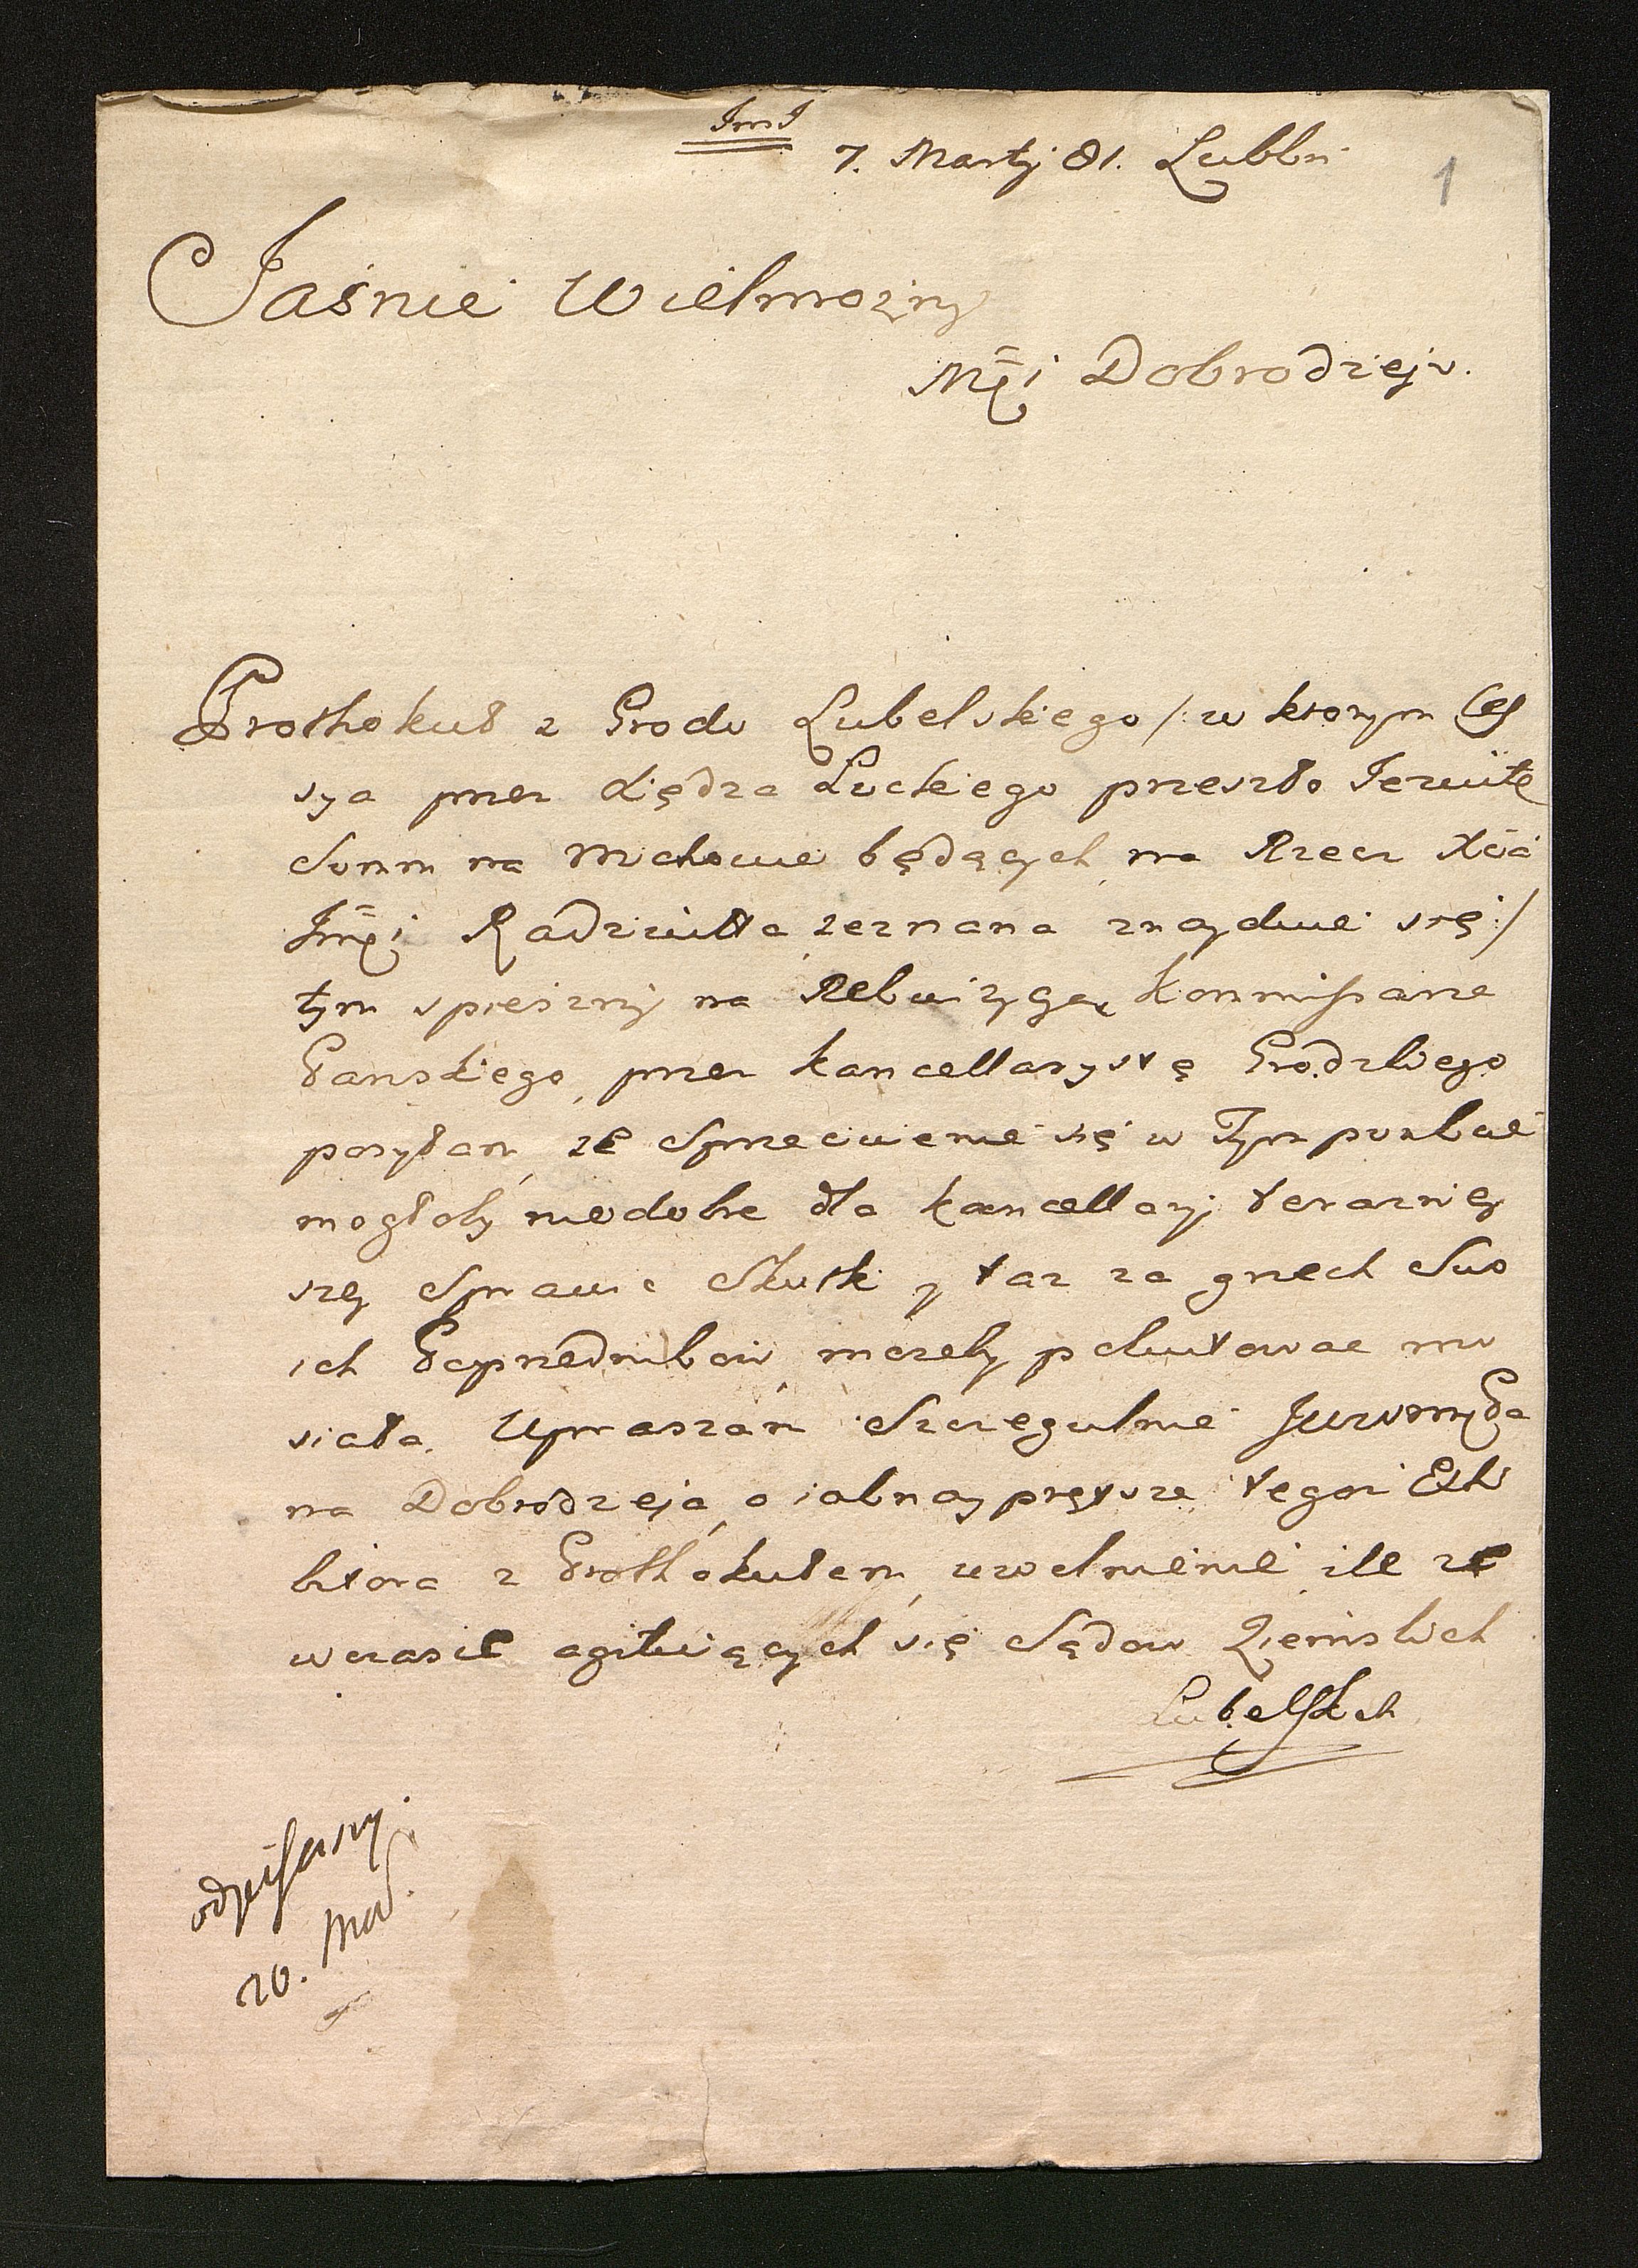 JMJ
7. Martij 81. Lublin
1
Jaśnie Wielmożny
Mći Dobrodzieju.
Prothokuł z Grodu Lubelskiego /: w ktorym Ces
sya przez Xiędza Łuckiego przeszło Jezuitę
Summ na Mchowie będących na Rzecz Xcia
Jmći Radziwiłła zeznana znayduie się :/
tym spieszniy na Rekwizycyą Kommissarza
Pańskiego przez Kancellarystę Grodzkiego
posyłam, że Sprzeciwienie się w Tym punkcie
mogłoby niedobre dla Kancellaryi terazniey
szey Sprawic Skutki y taz za grzech Swo
ich Poprzednikow możeby pokutowac mu
siała. Upraszam Szczegulnie JWWMPa
na Dobrodzieja o iaknayprętsze tegoż Exhi
bitora z Prothokułem uwolnienie ile że
w czasie agituiących się Sądow Ziemskich
Lubelskich
odpisany.
20. Mar.